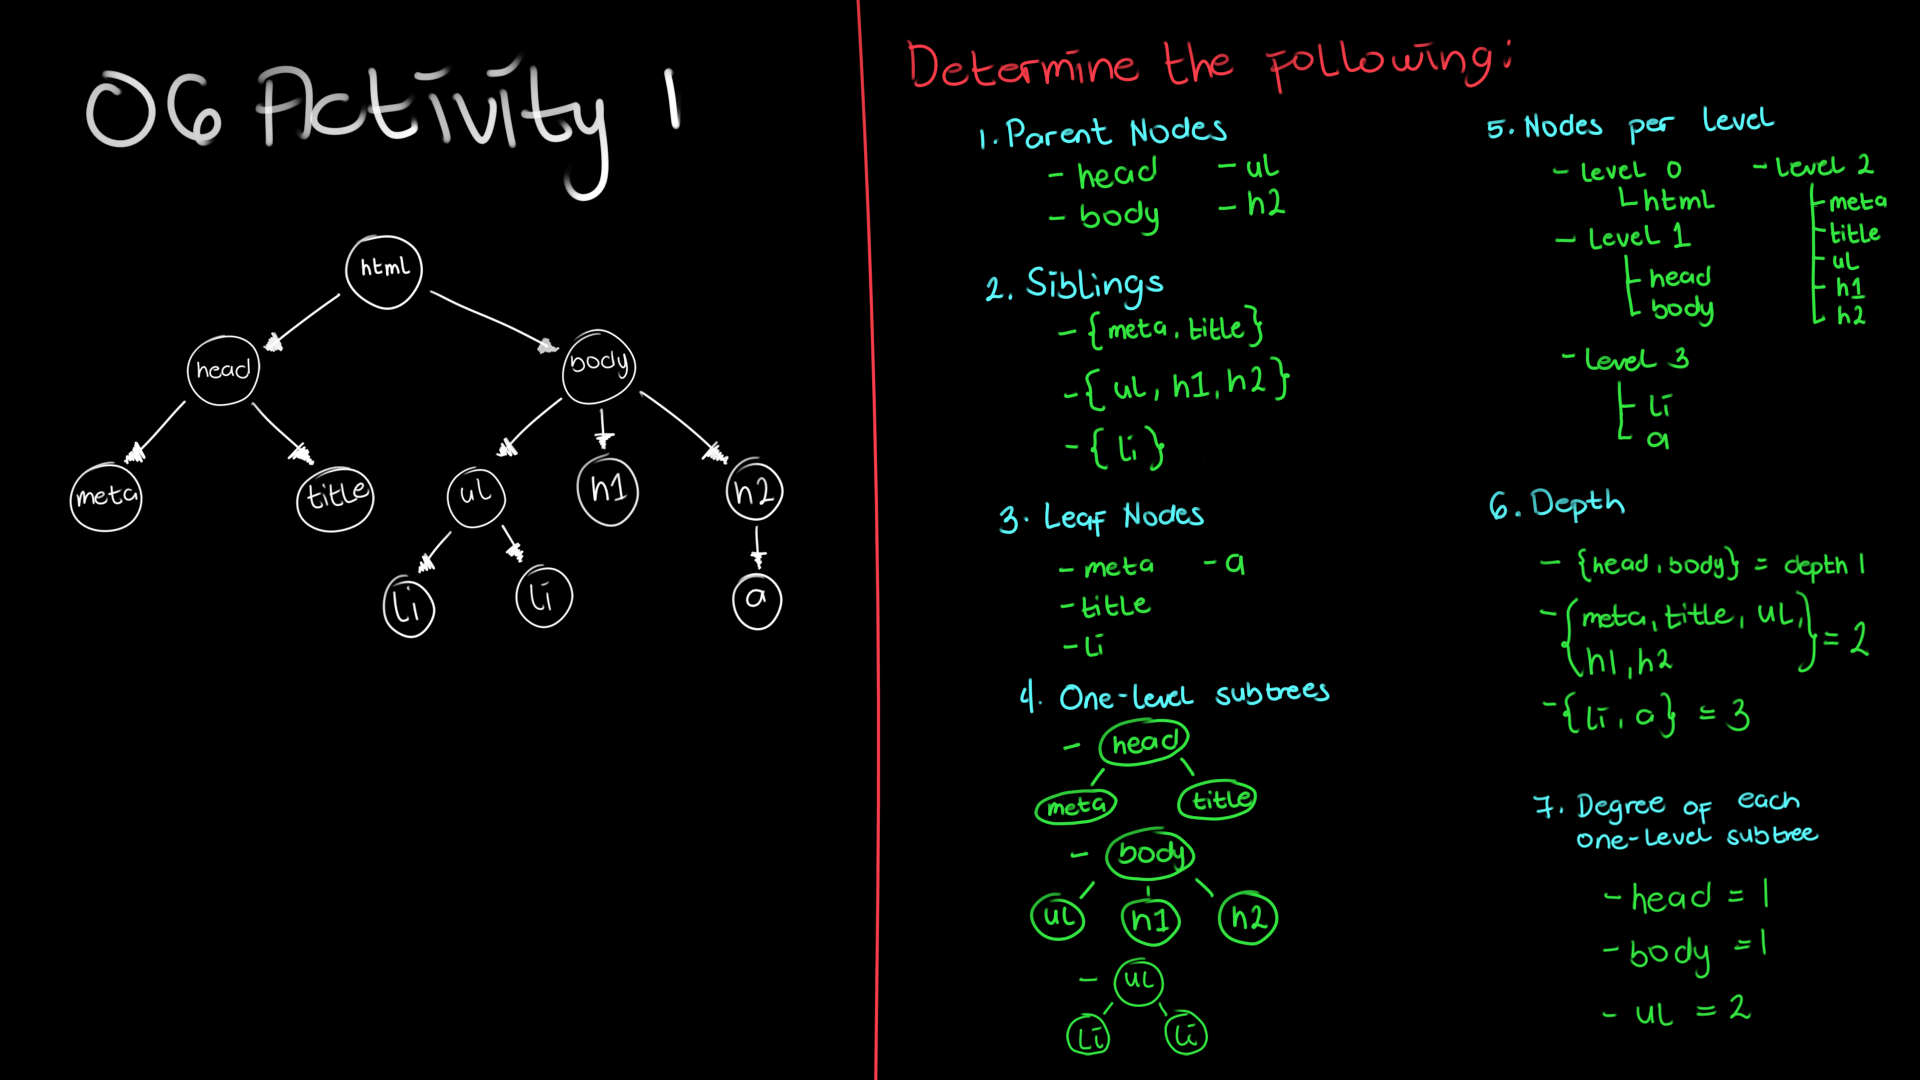 06 Activity 1
html
head
body
meta
title
ul
h1
h2
li
li
a
Determine the following:
1. Parent Nodes
- head
- ul
- body
- h2
2. Siblings
- {meta, title}
- {ul, h1, h2}
- {li}
3. Leaf Nodes
- meta
- a
- title
- li
4. One-level subtrees
- head
meta
title
- body
ul
h1
h2
- ul
li
li
5. Nodes per level
- level 0
html
- level 1
head
body
- level 2
meta
title
ul
h1
h2
- level 3
li
a
6. Depth
- {head, body} = depth 1
- {meta, title, ul,
h1, h2} = 2
- {li, a} = 3
7. Degree of each
one-level subtree
- head = 1
- body = 1
- ul = 2